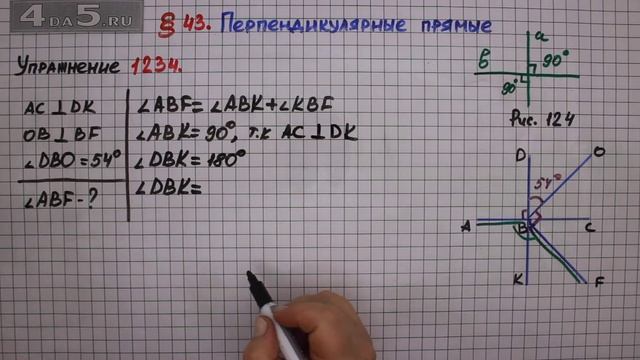 4DA5.RU
§ 43. Перпендикулярные прямые
Упражнение 1234.
AC ⊥ DK
OB ⊥ BF
∠DBO = 54°
∠ABF - ?
∠ABF = ∠ABK + ∠KBF
∠ABK = 90°, т.к AC ⊥ DK
∠DBK = 180°
∠DBK =
a
b
90°
90°
Рис. 124
D
O
54°
A
B
C
K
F